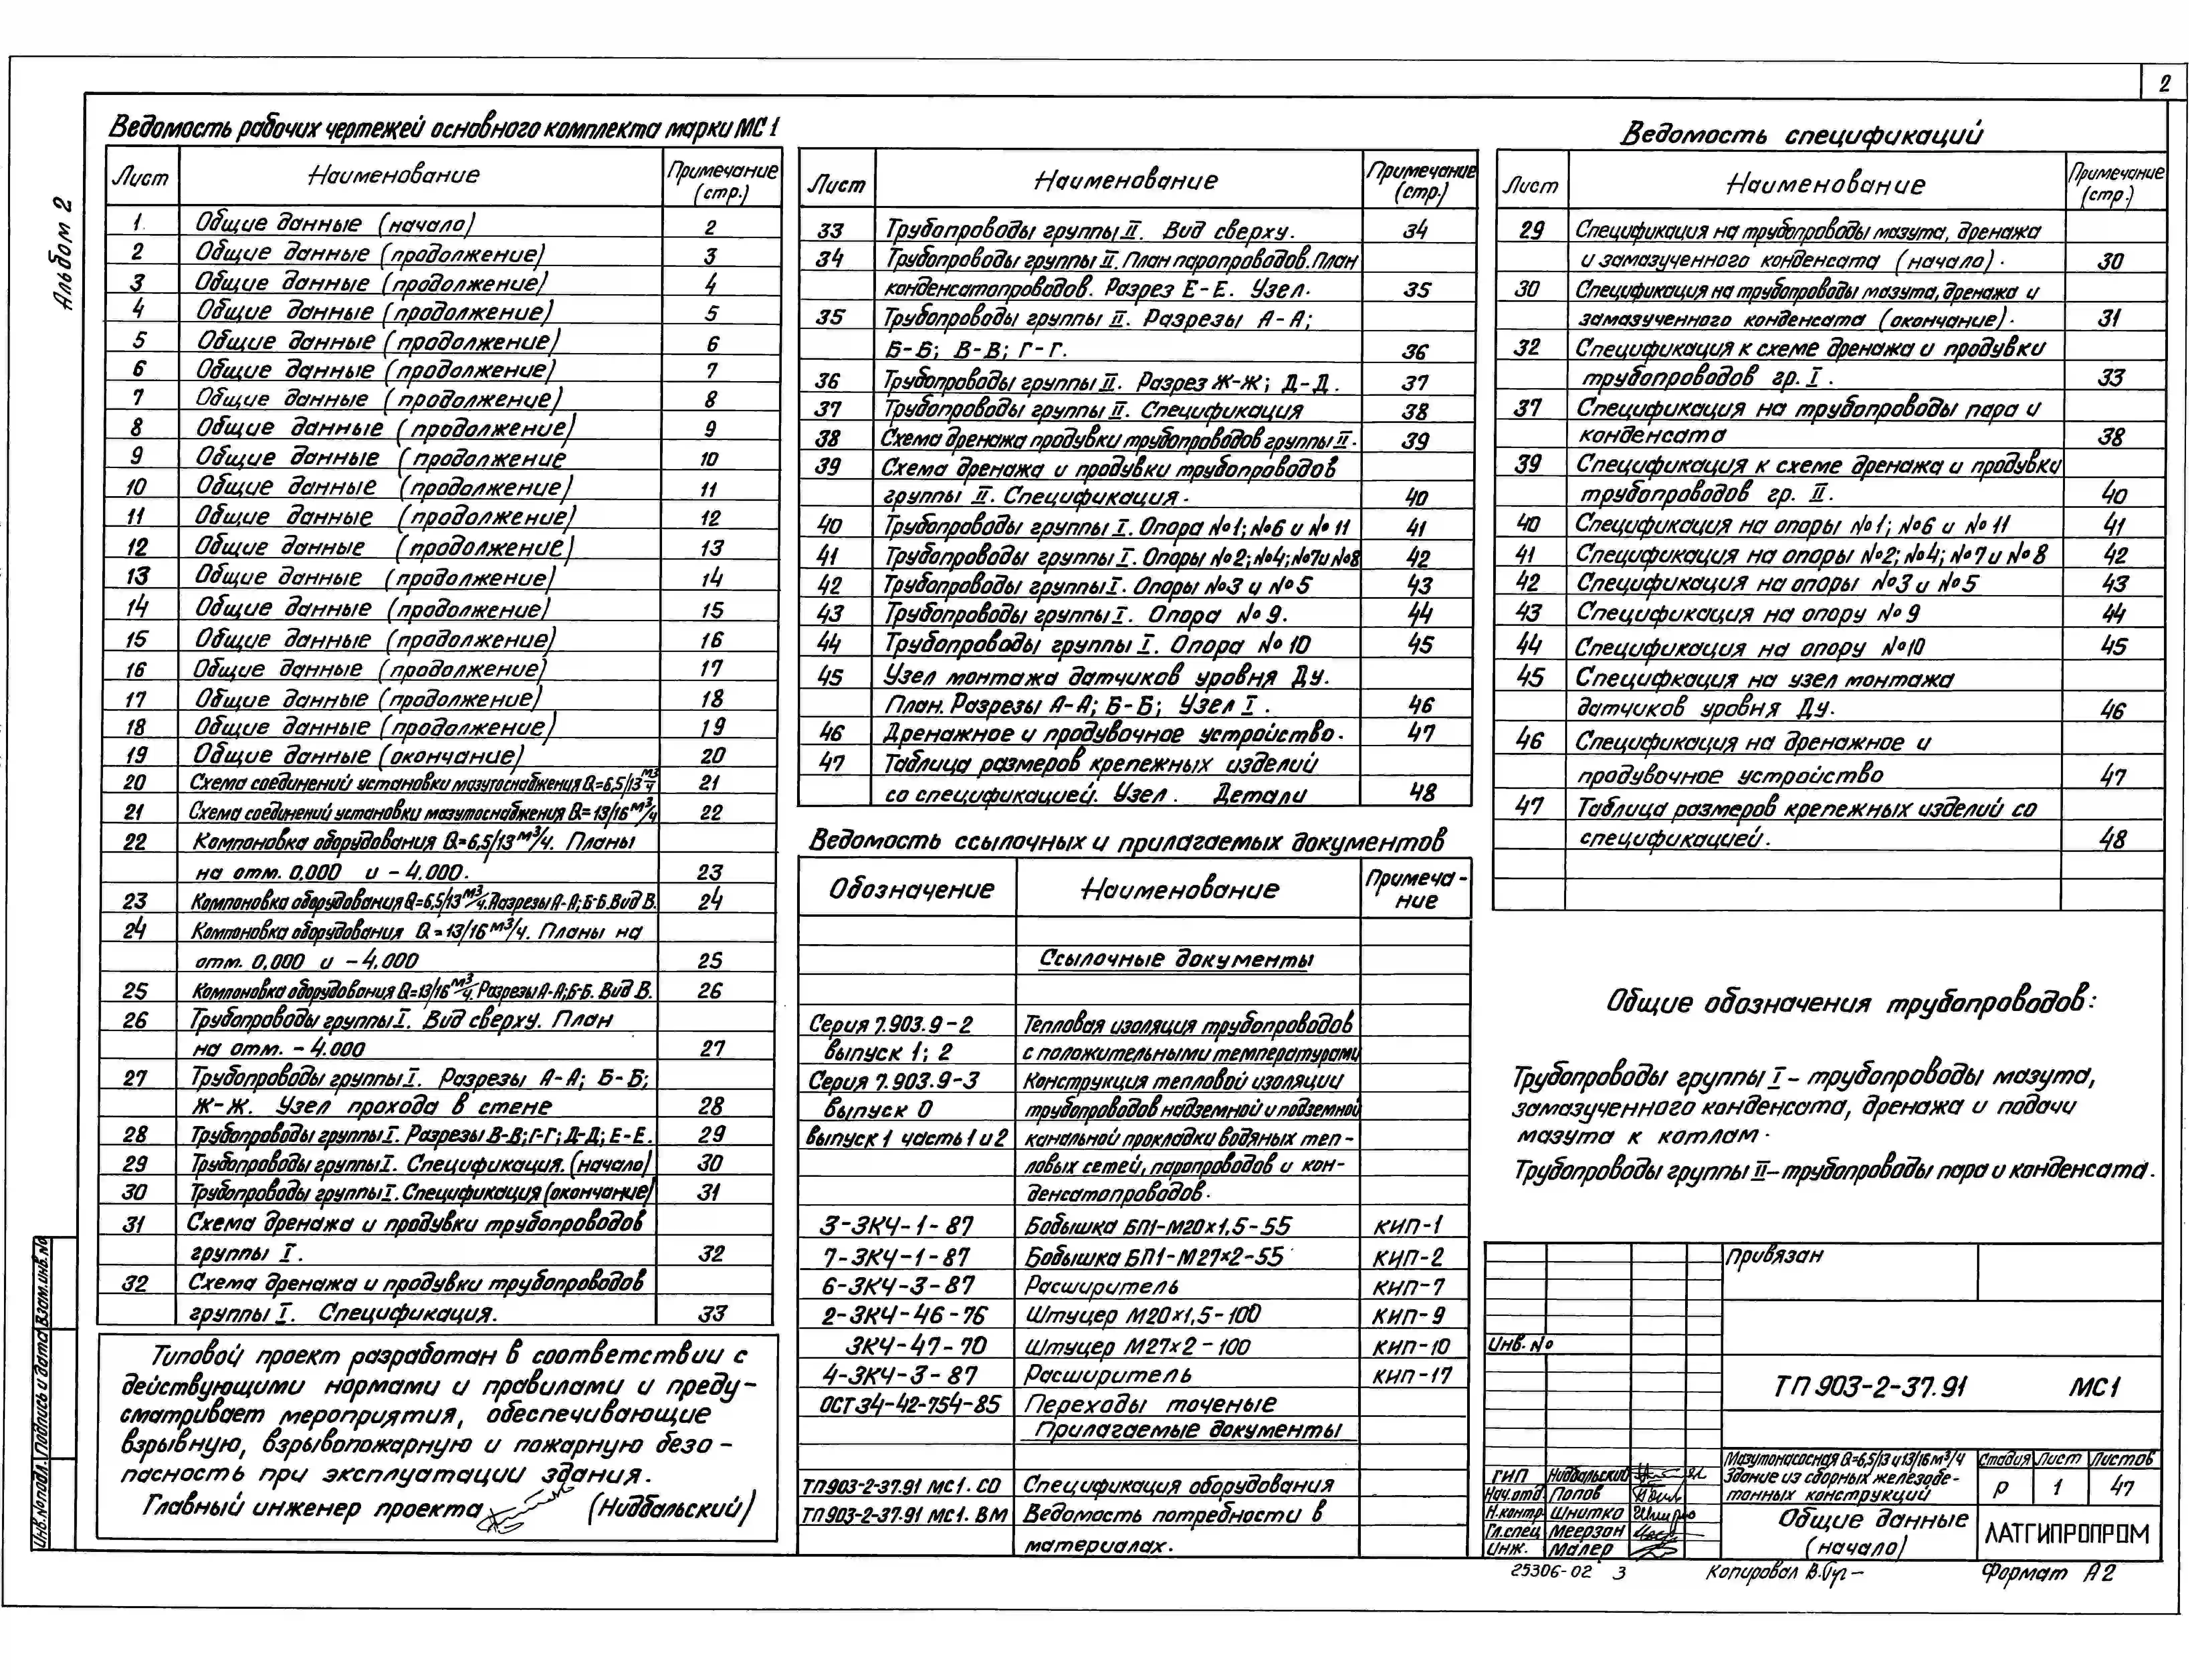 2
Альбом 2
Ведомость рабочих чертежей основного комплекта марки МС 1
Лист Наименование Примечание (стр.)
1 Общие данные (начало) 2
2 Общие данные (продолжение) 3
3 Общие данные (продолжение) 4
4 Общие данные (продолжение) 5
5 Общие данные (продолжение) 6
6 Общие данные (продолжение) 7
7 Общие данные (продолжение) 8
8 Общие данные (продолжение) 9
9 Общие данные (продолжение 10
10 Общие данные (продолжение) 11
11 Общие данные (продолжение) 12
12 Общие данные (продолжение) 13
13 Общие данные (продолжение) 14
14 Общие данные (продолжение) 15
15 Общие данные (продолжение) 16
16 Общие данные (продолжение) 17
17 Общие данные (продолжение) 18
18 Общие данные (продолжение) 19
19 Общие данные (окончание) 20
20 Схема соединений установки мазутоснабжения Q=6,5/13 м3/ч 21
21 Схема соединений установки мазутоснабжения Q=13/16 м3/ч 22
22 Компоновка оборудования Q=6,5/13 м3/ч. Планы
на отм. 0,000 и -4.000. 23
23 Компоновка оборудования Q=6,5/13 м3/ч. Разрезы А-А; Б-Б. Вид В. 24
24 Компоновка оборудования Q=13/16 м3/ч. Планы на
отм. 0,000 и -4,000 25
25 Компоновка оборудования Q=13/16 м3/ч. Разрезы А-А; Б-Б. Вид В. 26
26 Трубопроводы группы I. Вид сверху. План
на отм. -4.000 27
27 Трубопроводы группы I. Разрезы А-А; Б-Б;
Ж-Ж. Узел прохода в стене 28
28 Трубопроводы группы I. Разрезы В-В; Г-Г; Д-Д; Е-Е. 29
29 Трубопроводы группы I. Спецификация. (начало) 30
30 Трубопроводы группы I. Спецификация (окончание) 31
31 Схема дренажа и продувки трубопроводов
группы I. 32
32 Схема дренажа и продувки трубопроводов
группы I. Спецификация. 33
Типовой проект разработан в соответствии с
действующими нормами и правилами и преду-
сматривает мероприятия, обеспечивающие
взрывную, взрывопожарную и пожарную безо-
пасность при эксплуатации здания.
Главный инженер проекта (Нидбальский)
Лист Наименование Примечание (стр.)
33 Трубопроводы группы II. Вид сверху. 34
34 Трубопроводы группы II. План паропроводов. План
конденсатопроводов. Разрез Е-Е. Узел. 35
35 Трубопроводы группы II. Разрезы А-А;
Б-Б; В-В; Г-Г. 36
36 Трубопроводы группы II. Разрез Ж-Ж; Д-Д. 37
37 Трубопроводы группы II. Спецификация 38
38 Схема дренажа продувки трубопроводов группы II. 39
39 Схема дренажа и продувки трубопроводов
группы II. Спецификация. 40
40 Трубопроводы группы I. Опора №1; №6 и №11 41
41 Трубопроводы группы I. Опоры №2; №4; №7 и №8 42
42 Трубопроводы группы I. Опоры №3 и №5 43
43 Трубопроводы группы I. Опора №9. 44
44 Трубопроводы группы I. Опора №10 45
45 Узел монтажа датчиков уровня Ду.
План. Разрезы А-А; Б-Б; Узел I. 46
46 Дренажное и продувочное устройство. 47
47 Таблица размеров крепежных изделий
со спецификацией. Узел. Детали 48
Ведомость ссылочных и прилагаемых документов
Обозначение Наименование Примечание
Ссылочные документы
Серия 7.903.9-2 Тепловая изоляция трубопроводов
выпуск 1; 2 с положительными температурами
Серия 7.903.9-3 Конструкция тепловой изоляции
выпуск 0 трубопроводов надземной и подземной
выпуск 1 часть 1 и 2 канальной прокладки водяных теп-
ловых сетей, паропроводов и кон-
денсатопроводов.
3-ЗКЧ-1-87 Бобышка БП1-М20х1,5-55 КИП-1
7-ЗКЧ-1-87 Бобышка БП1-М27х2-55 КИП-2
6-ЗКЧ-3-87 Расширитель КИП-7
2-ЗКЧ-46-76 Штуцер М20х1,5-100 КИП-9
ЗКЧ-47-70 Штуцер М27х2-100 КИП-10
4-ЗКЧ-3-87 Расширитель КИП-17
ОСТ 34-42-754-85 Переходы точеные
Прилагаемые документы
ТП 903-2-37.91 МС1. СО Спецификация оборудования
ТП 903-2-37.91 МС1. ВМ Ведомость потребности в
материалах.
Ведомость спецификаций
Лист Наименование Примечание (стр.)
29 Спецификация на трубопроводы мазута, дренажа
и замазученного конденсата (начало). 30
30 Спецификация на трубопроводы мазута, дренажа и
замазученного конденсата (окончание). 31
32 Спецификация к схеме дренажа и продувки
трубопроводов гр. I. 33
37 Спецификация на трубопроводы пара и
конденсата 38
39 Спецификация к схеме дренажа и продувки
трубопроводов гр. II. 40
40 Спецификация на опоры №1; №6 и №11 41
41 Спецификация на опоры №2; №4; №7 и №8 42
42 Спецификация на опоры №3 и №5 43
43 Спецификация на опору №9 44
44 Спецификация на опору №10 45
45 Специфкация на узел монтажа
датчиков уровня Ду. 46
46 Спецификация на дренажное и
продувочное устройство 47
47 Таблица размеров крепежных изделий со
спецификацией. 48
Общие обозначения трубопроводов:
Трубопроводы группы I - трубопроводы мазута,
замазученного конденсата, дренажа и подачи
мазута к котлам.
Трубопроводы группы II - трубопроводы пара и конденсата.
Привязан
Инв. №
ТП 903-2-37.91 МС1
Мазутонасосная Q=6,5/13 и 13/16 м3/ч
Здание из сборных железобе-
тонных конструкций
Стадия Лист Листов
Р 1 47
ГИП Нидбальский
Нач.отд Попов
Н.контр. Шнитко
Гл.спец Меерзон
Инж. Малер
Общие данные
(начало)
ЛАТГИПРОПРОМ
25306-02 3
Копировал
Формат А2
Инв.№ подл. Подпись и дата Взам.инв.№